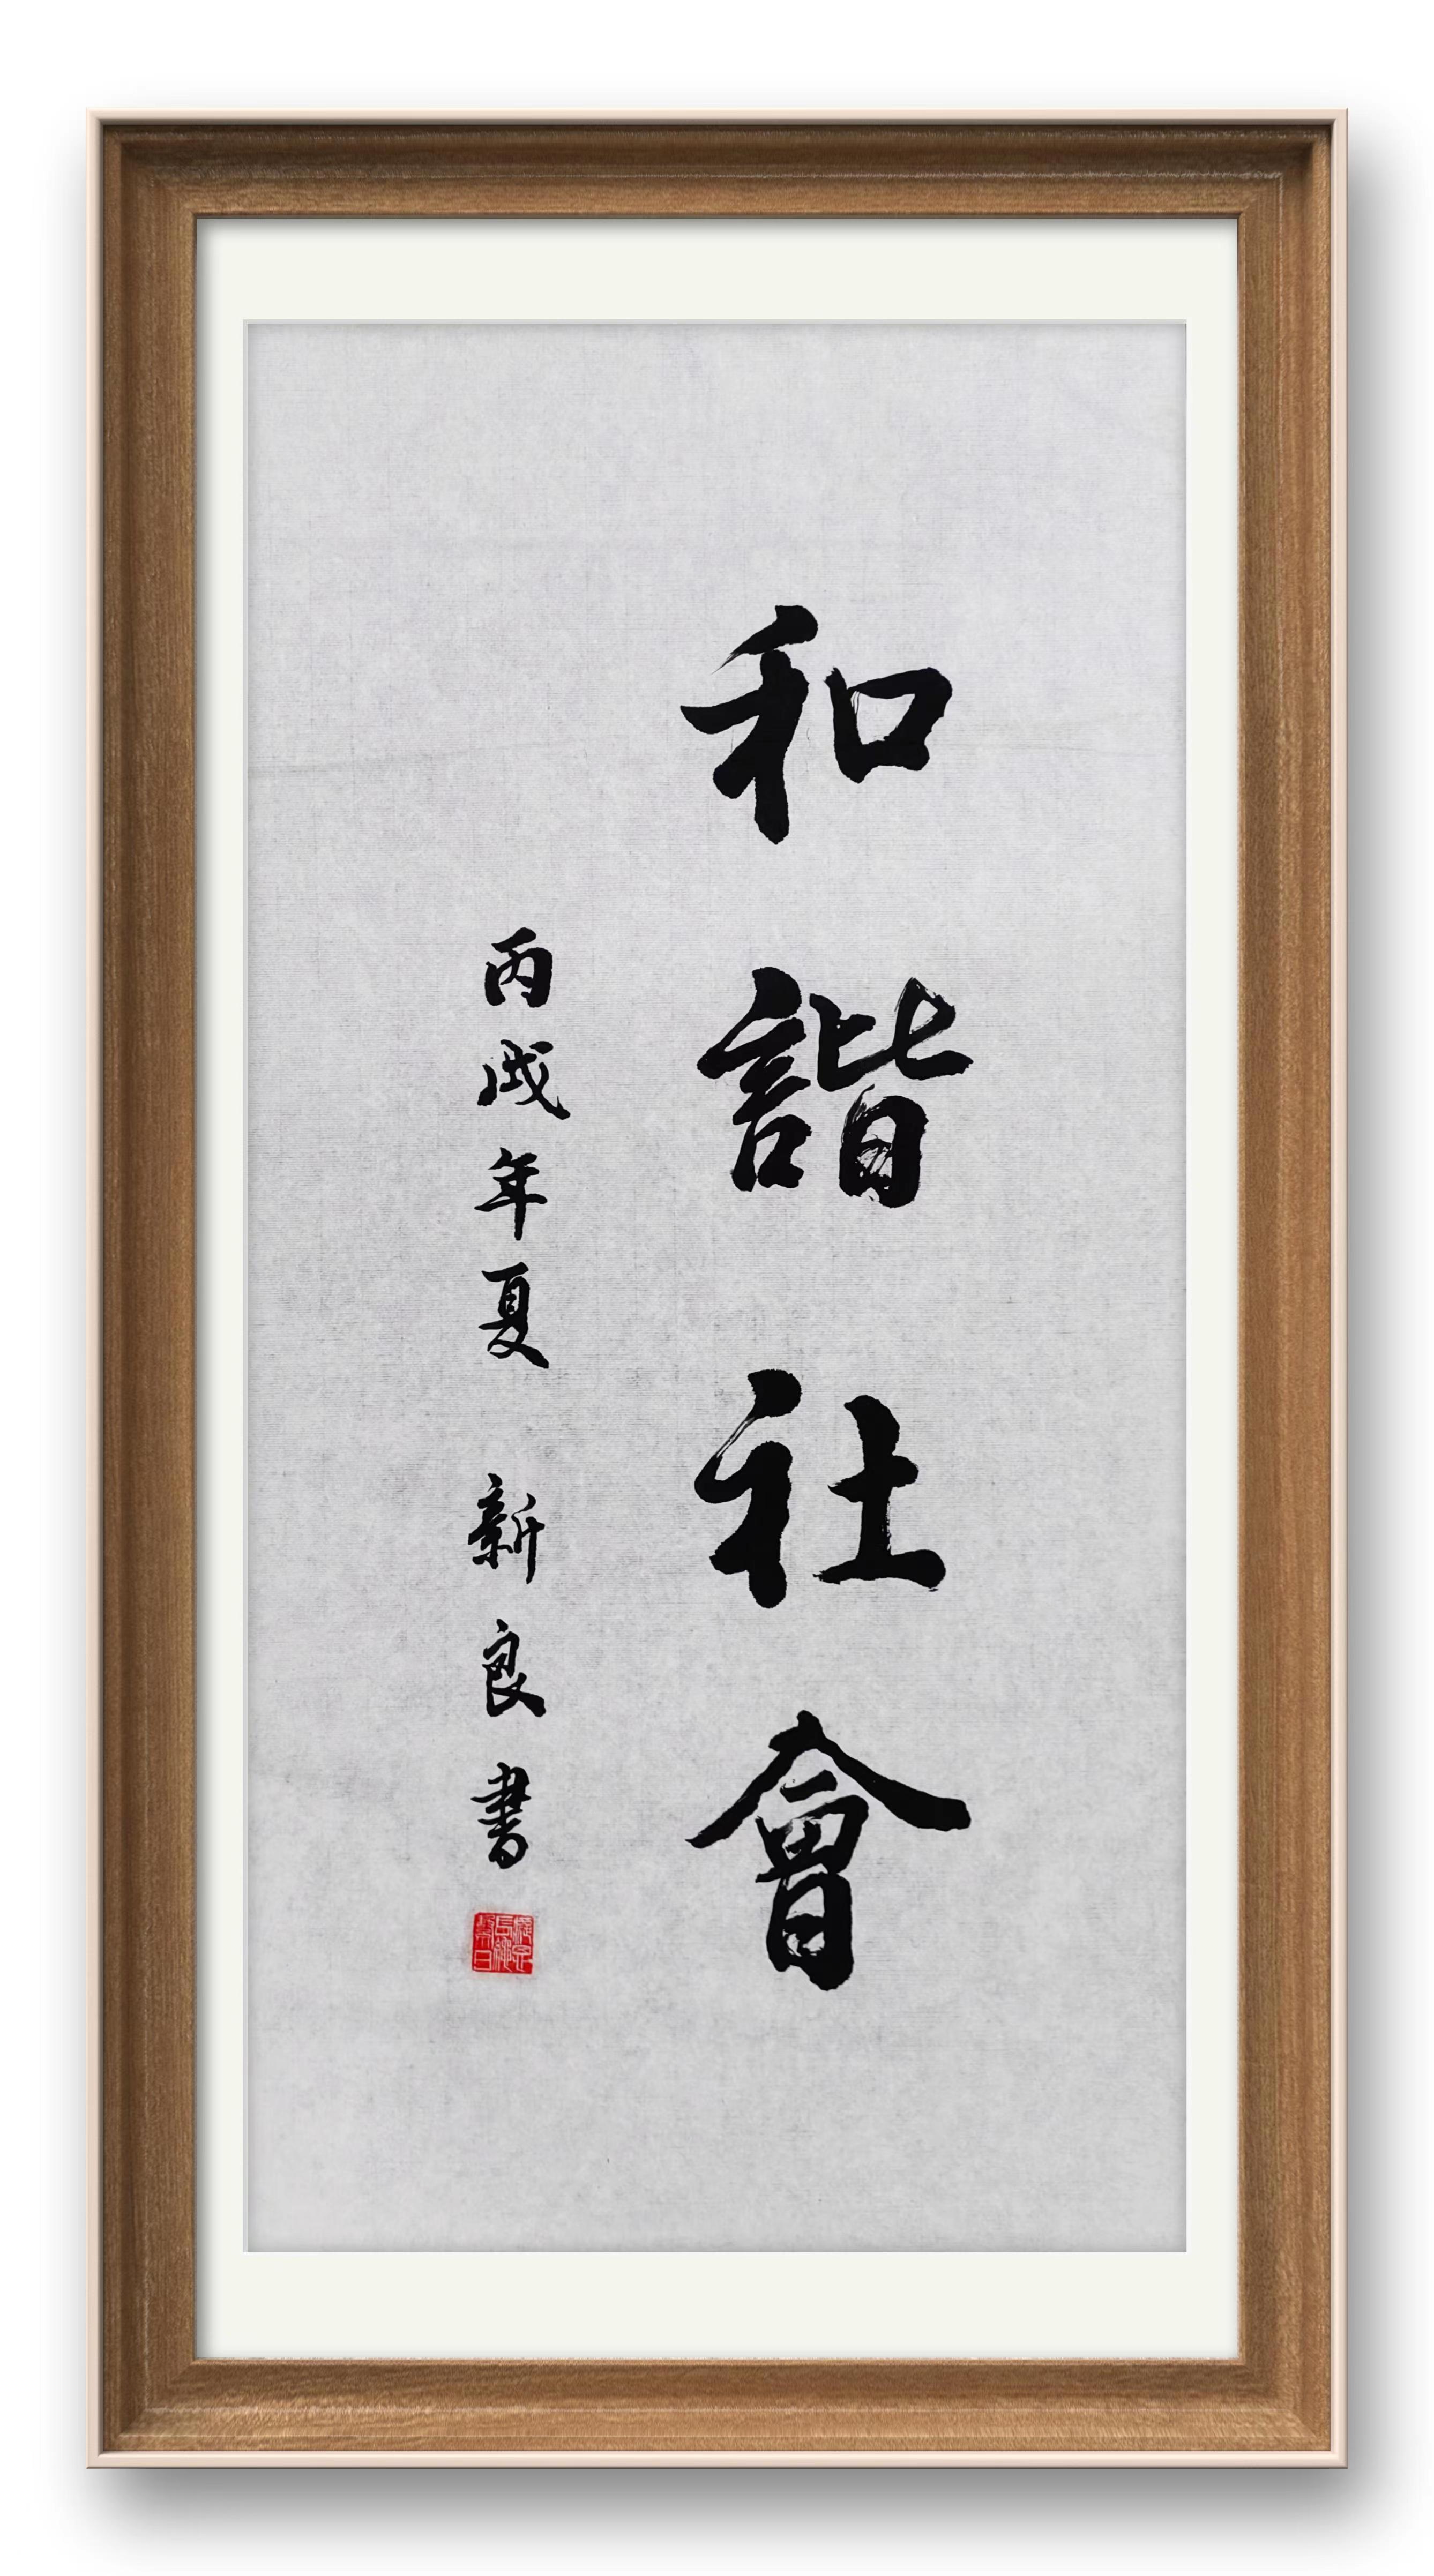 和諧社會
丙戌年夏 新良書